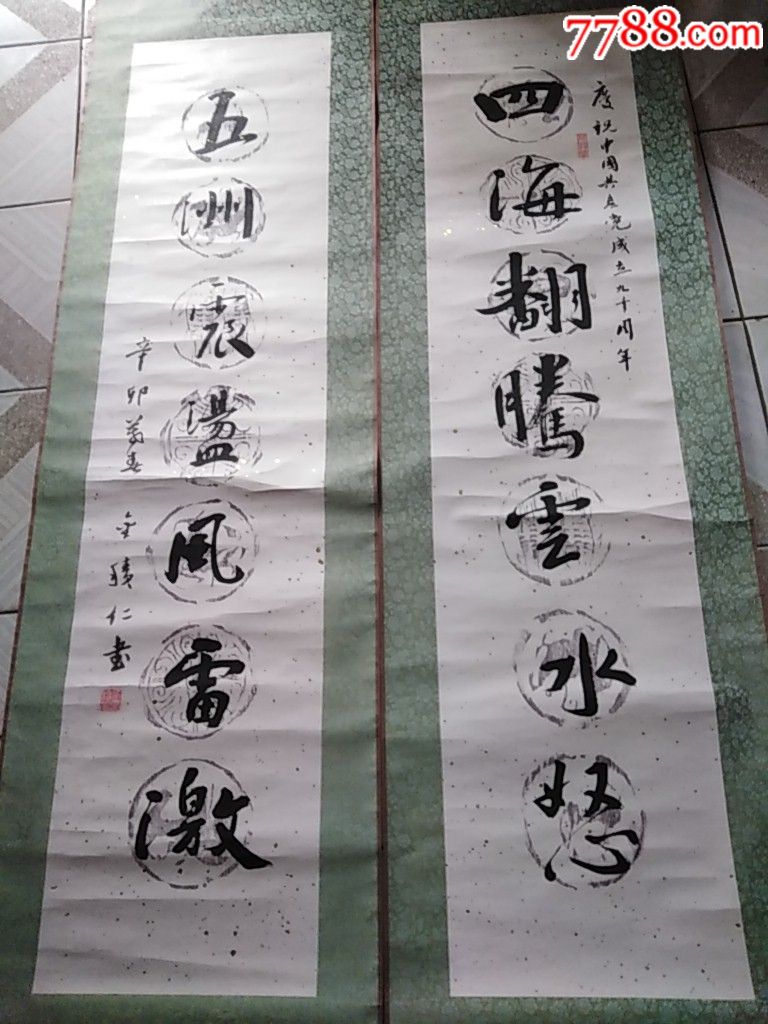 7788.com
慶祝中國共産党成立九十周年
四海翻騰雲水怒
五洲震盪風雷激
辛卯芳春
金積仁書